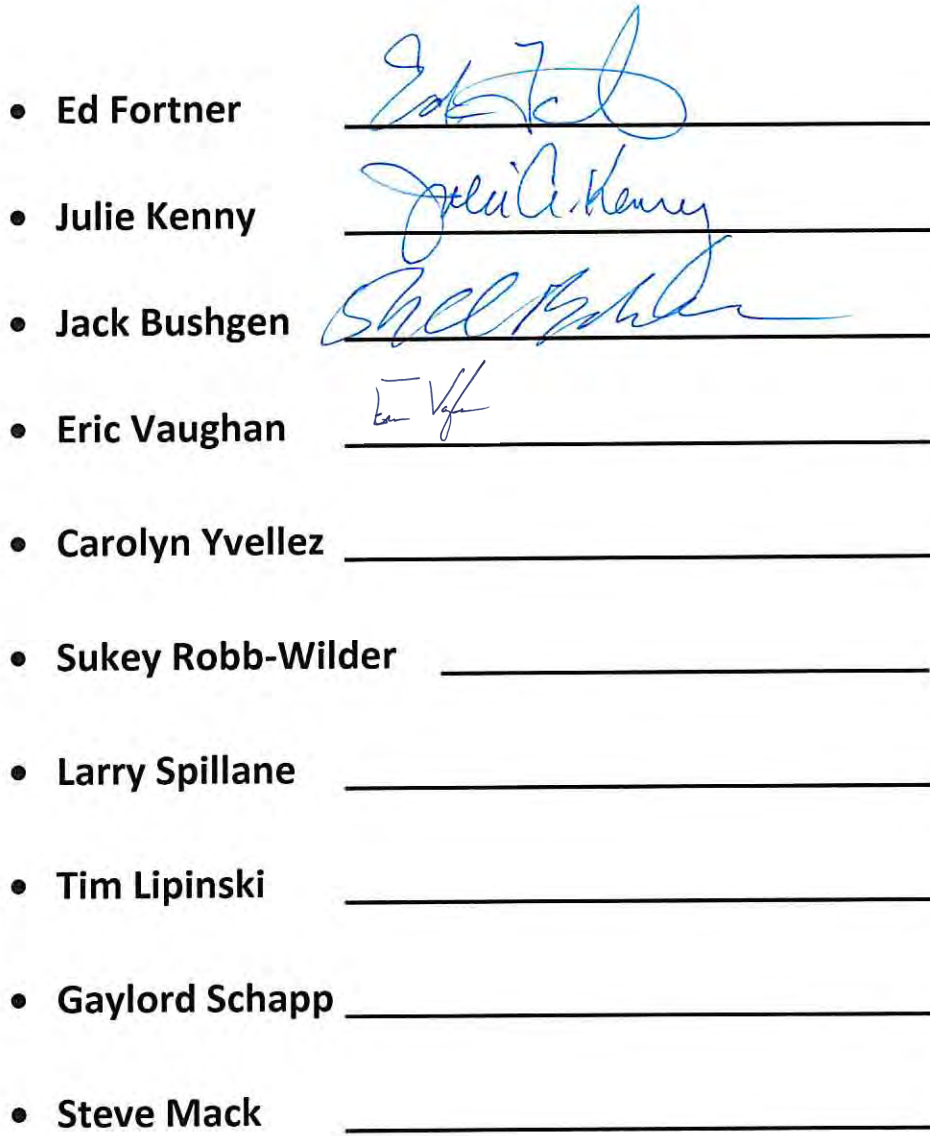 • Ed Fortner
• Julie Kenny Julie A. Kenny
• Jack Bushgen
• Eric Vaughan
• Carolyn Yvellez
• Sukey Robb-Wilder
• Larry Spillane
• Tim Lipinski
• Gaylord Schapp
• Steve Mack